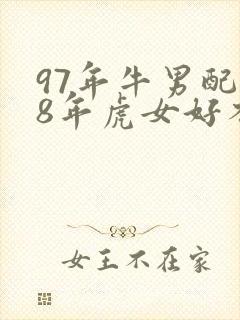 97年牛男配
8年虎女好
女王不在家